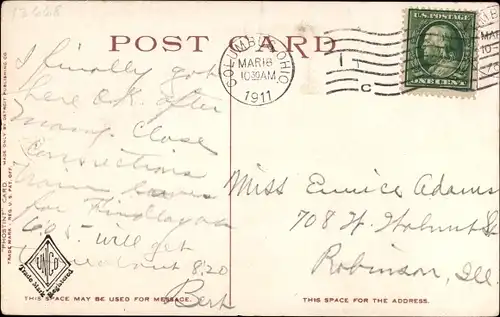 12668
POST CARD
U.S. POSTAGE
COLUMBUS, OHIO
MAR 18
10 30 AM
1911
I finally got
here O.K. after
many close
connections
train leaves
for Findlay at
6:05 will get
there about 8:20
Bert
Miss Eunice Adams
708 W. Walnut St
Robinson, Ill.
"PHOSTINT" CARD MADE ONLY BY DETROIT PUBLISHING CO.
TRADE MARK REG. U.S. PAT. OFF.
Trade Mark
Registered
THIS SPACE MAY BE USED FOR MESSAGE.
THIS SPACE IS FOR THE ADDRESS.